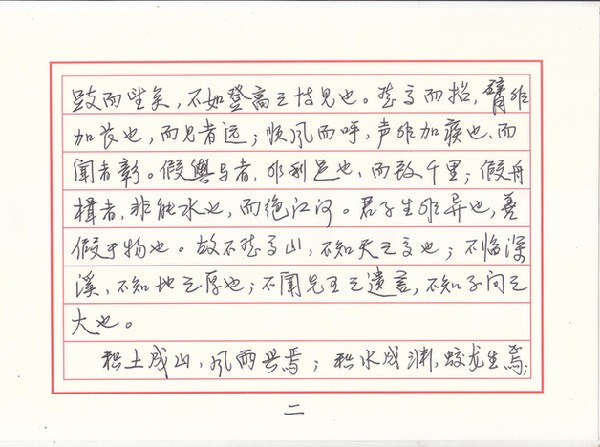 跂而望矣，不如登高之博见也。登高而招，臂非
加长也，而见者远；顺风而呼，声非加疾也，而
闻者彰。假舆马者，非利足也，而致千里；假舟
楫者，非能水也，而绝江河。君子生非异也，善
假于物也。故不登高山，不知天之高也；不临深
溪，不知地之厚也；不闻先王之遗言，不知学问之
大也。
积土成山，风雨兴焉；积水成渊，蛟龙生焉；
二